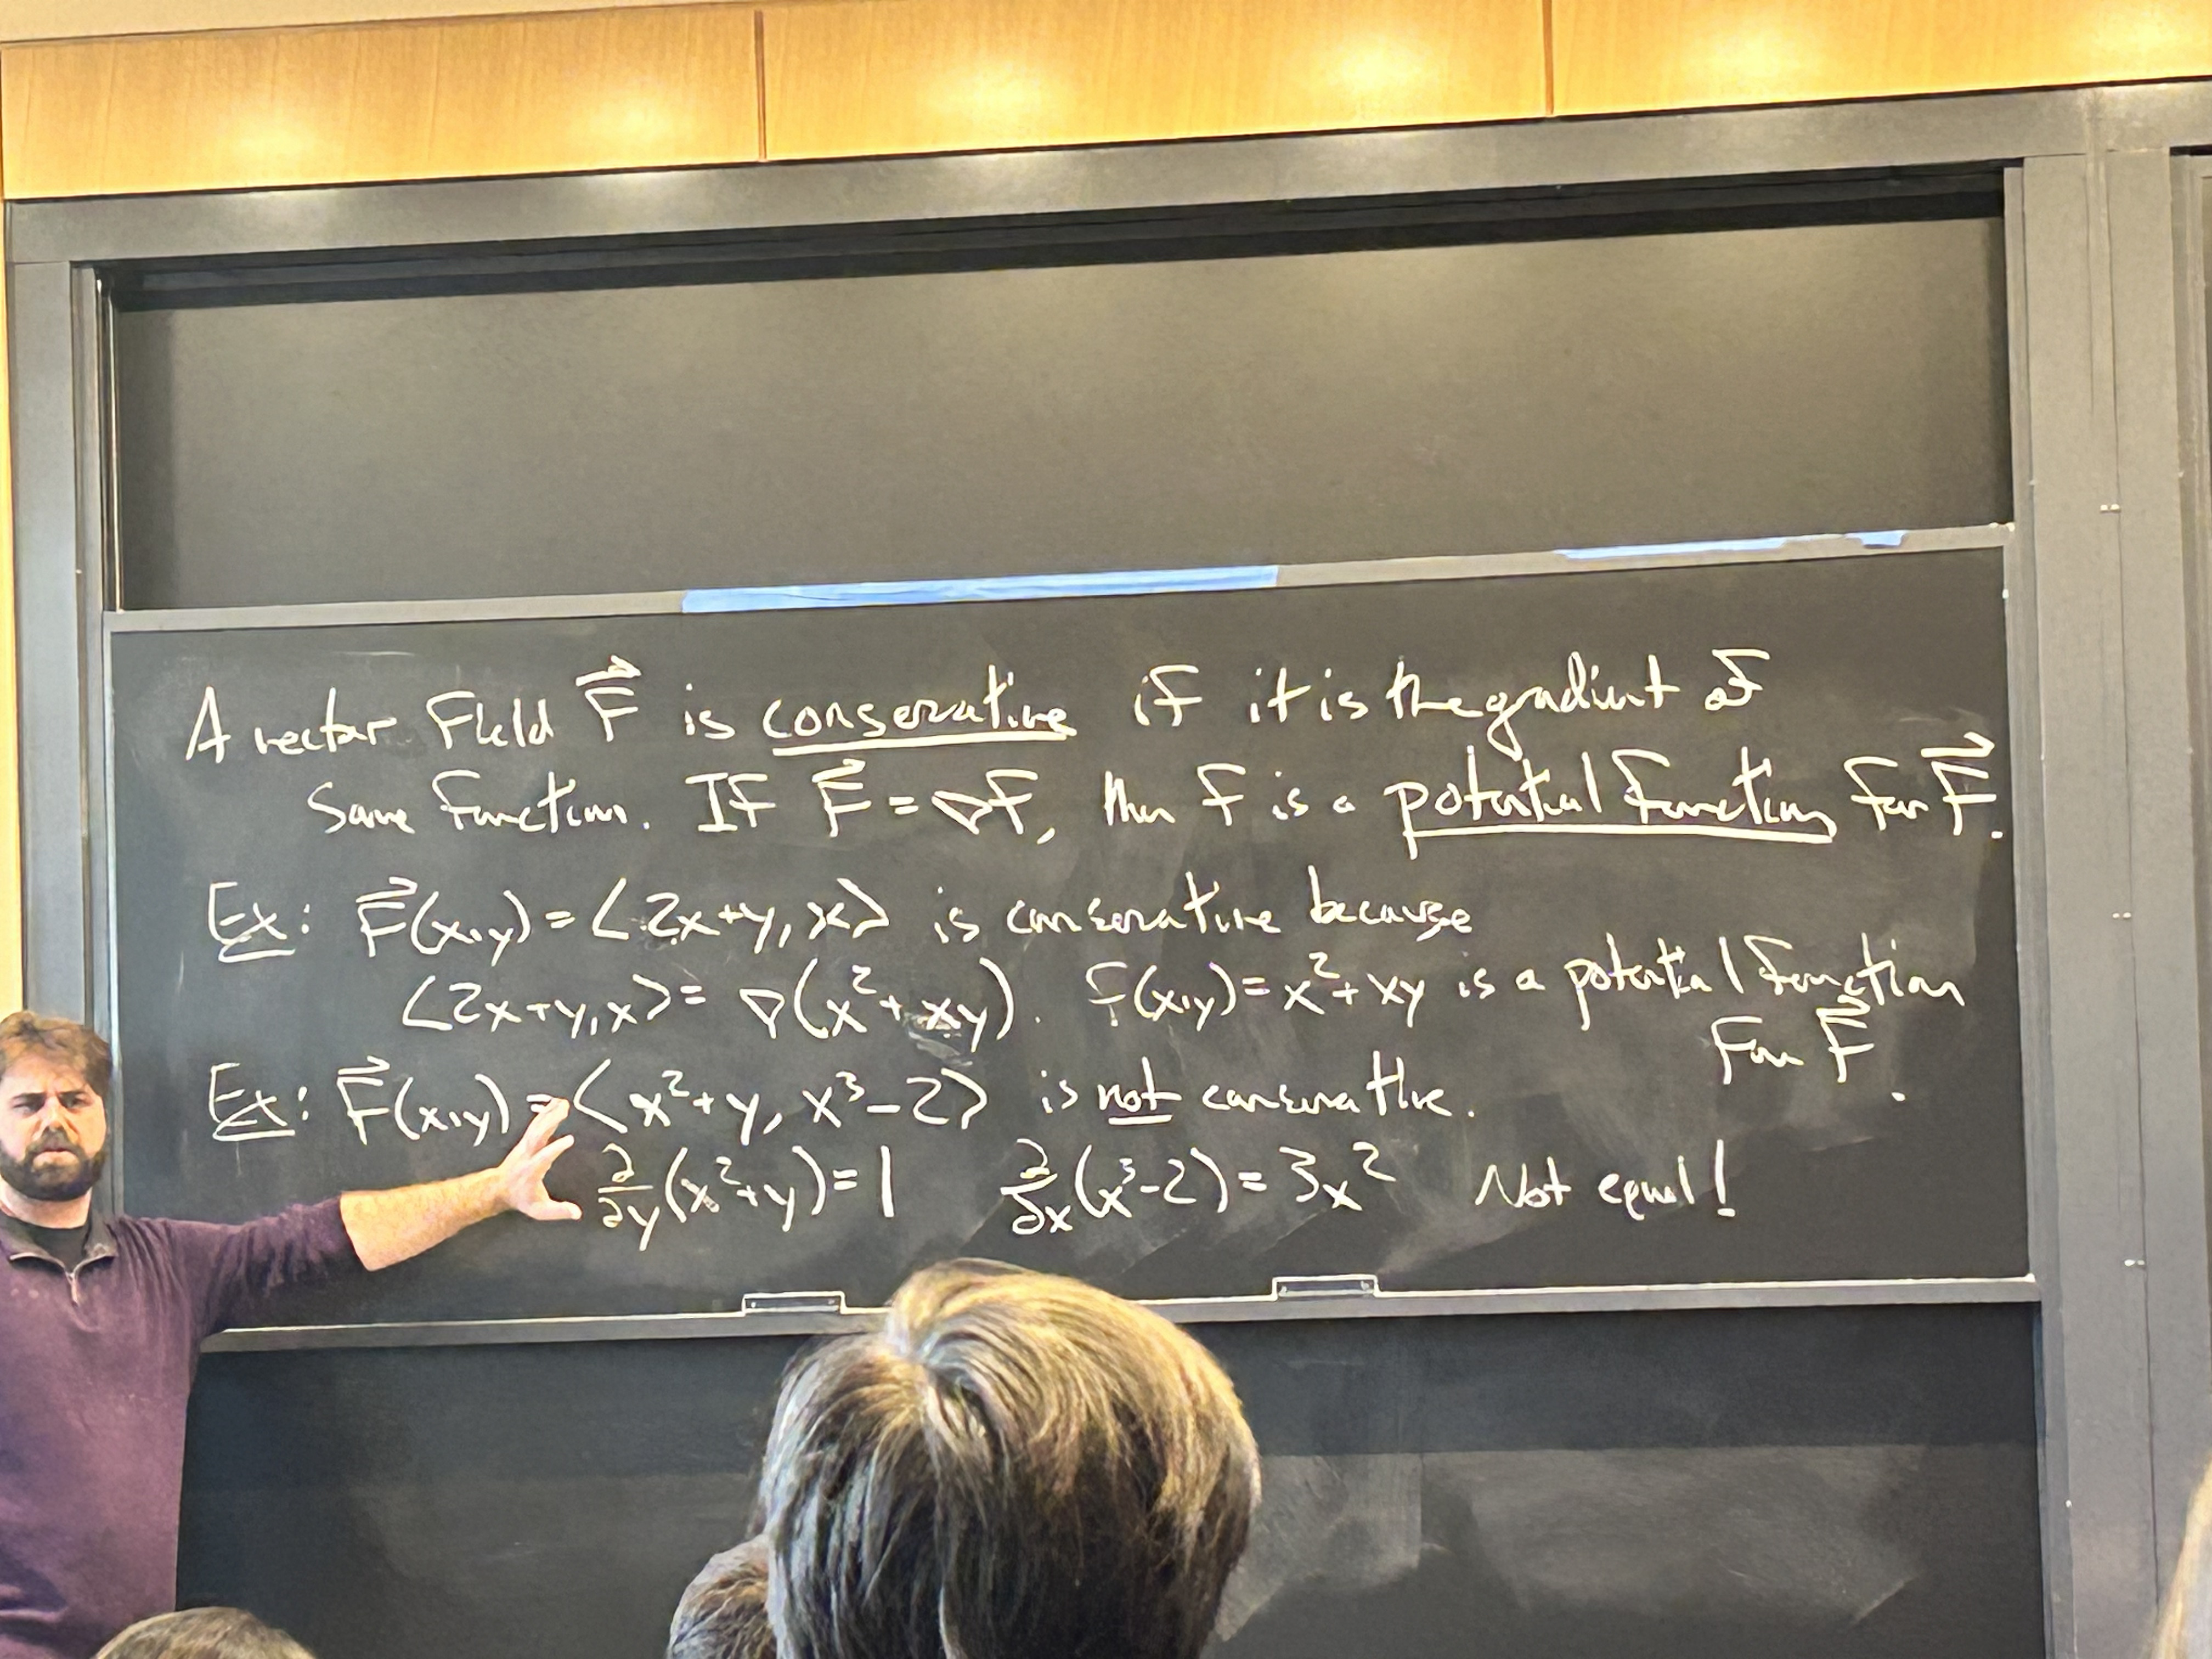 A vector field F⃗ is conservative if it is the gradient of
some function. If F⃗ = ∇f, then f is a potential function for F⃗.
Ex: F⃗(x,y) = ⟨2x+y, x⟩ is conservative because
⟨2x+y, x⟩ = ∇(x²+xy). f(x,y) = x²+xy is a potential function
for F⃗.
Ex: F⃗(x,y) = ⟨x²+y, x³-2⟩ is not conservative.
∂/∂y(x²+y) = 1 ∂/∂x(x³-2) = 3x² Not equal!